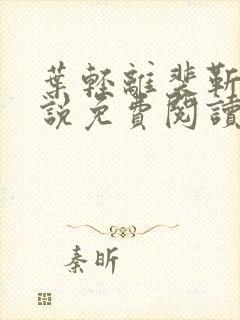 葉輕離裴靳
說免費閱讀
秦昕